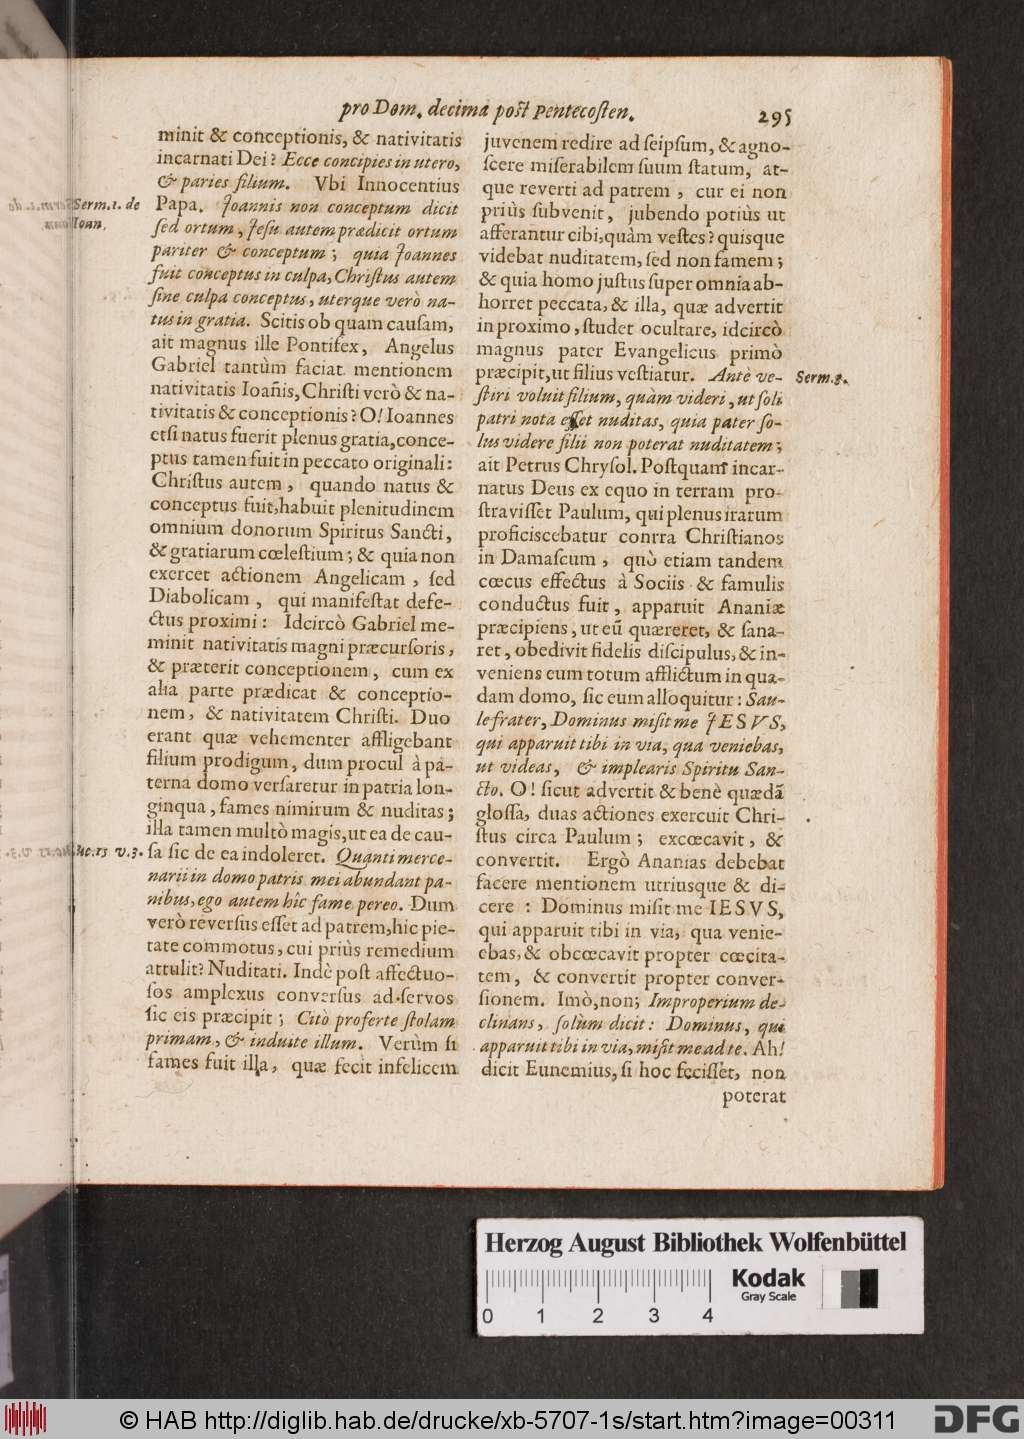 pro Dom. decima poſt Pentecoſten.
295
minit & conceptionis, & nativitatis
incarnati Dei? Ecce concipies in utero,
& paries filium. Vbi Innocentius
Papa. Joannis non conceptum dicit
ſed ortum, Jeſu autem prædicit ortum
pariter & conceptum; quia Joannes
fuit conceptus in culpa, Chriſtus autem
ſine culpa conceptus, uterque verò na-
tus in gratia. Scitis ob quam cauſam,
ait magnus ille Pontifex, Angelus
Gabriel tantùm faciat mentionem
nativitatis Ioañis, Chriſti verò & na-
tivitatis & conceptionis? O! Ioannes
etſi natus fuerit plenus gratia, conce-
ptus tamen fuit in peccato originali:
Chriſtus autem, quando natus &
conceptus fuit, habuit plenitudinem
omnium donorum Spiritus Sancti,
& gratiarum cœleſtium; & quia non
exercet actionem Angelicam, ſed
Diabolicam, qui manifeſtat defe-
ctus proximi: Idcircò Gabriel me-
minit nativitatis magni præcurſoris,
& præterit conceptionem, cum ex
alia parte prædicat & conceptio-
nem, & nativitatem Chriſti. Duo
erant quæ vehementer affligebant
filium prodigum, dum procul à pa-
terna domo verſaretur in patria lon-
ginqua, fames nimirum & nuditas;
illa tamen multò magis, ut ea de cau-
ſa ſic de ea indoleret. Quanti merce-
narii in domo patris mei abundant pa-
nibus, ego autem hîc fame pereo. Dum
verò reverſus eſſet ad patrem, hic pie-
tate commotus, cui priùs remedium
attulit? Nuditati. Indè poſt affectuo-
ſos amplexus converſus ad ſervos
ſic eis præcipit; Citò proferte ſtolam
primam, & induite illum. Verùm ſi
fames fuit illa, quæ fecit infelicem
Serm. 1. de
Ioan.
uc. 15 v. 3.
juvenem redire ad ſeipſum, & agno-
ſcere miſerabilem ſuum ſtatum, at-
que reverti ad patrem, cur ei non
priùs ſubvenit, jubendo potiùs ut
afferantur cibi, quàm veſtes? quisque
videbat nuditatem, ſed non famem;
& quia homo juſtus ſuper omnia ab-
horret peccata, & illa, quæ advertit
in proximo, ſtudet ocultare, idcircò
magnus pater Evangelicus primò
præcipit, ut filius veſtiatur. Antè ve-
ſtiri voluit filium, quàm videri, ut ſoli
patri nota eſſet nuditas, quia pater ſo-
lus videre filii non poterat nuditatem;
ait Petrus Chryſol. Poſtquam incar-
natus Deus ex equo in terram pro-
ſtraviſſet Paulum, qui plenus irarum
proficiscebatur contra Chriſtianos
in Damaſcum, quò etiam tandem
cœcus effectus à Sociis & famulis
conductus fuit, apparuit Ananiæ
præcipiens, ut eũ quæreret, & ſana-
ret, obedivit fidelis diſcipulus, & in-
veniens eum totum afflictum in qua-
dam domo, ſic eum alloquitur: Sau-
le frater, Dominus miſit me JESVS,
qui apparuit tibi in via, qua veniebas,
ut videas, & implearis Spiritu San-
cto. O! ſicut advertit & benè quædã
gloſſa, duas actiones exercuit Chri-
ſtus circa Paulum; excœcavit, &
convertit. Ergò Ananias debebat
facere mentionem utriusque & di-
cere: Dominus miſit me IESVS,
qui apparuit tibi in via, qua venie-
ebas, & obcœcavit propter cœcita-
tem, & convertit propter conver-
ſionem. Imò, non; Improperium de-
clinans, ſolùm dicit: Dominus, qui
apparuit tibi in via, miſit me ad te. Ah!
dicit Eunemius, ſi hoc feciſſet, non
poterat
Serm. 3.
Herzog August Bibliothek Wolfenbüttel
Kodak
Gray Scale
0 1 2 3 4
© HAB http://diglib.hab.de/drucke/xb-5707-1s/start.htm?image=00311
DFG